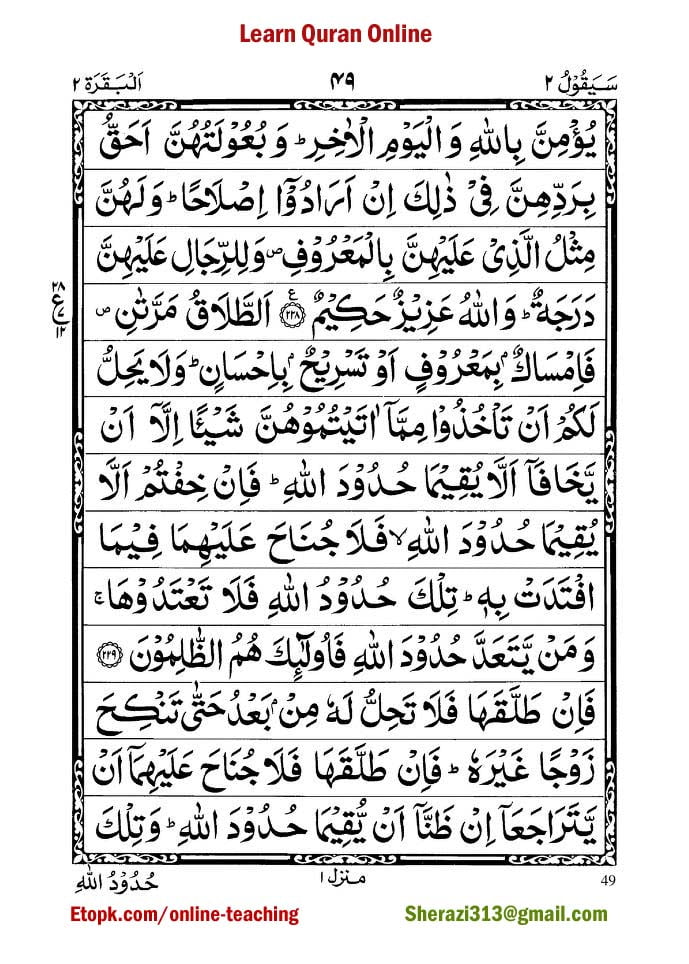 Learn Quran Online
سَيَقُوۡلُ ٢
٤٩
اَلۡبَقَرَة ٢
يُؤۡمِنَّ بِاللّٰهِ وَ الۡيَوۡمِ الۡاٰخِرِ ؕ وَ بُعُوۡلَتُهُنَّ اَحَقُّ
بِرَدِّهِنَّ فِىۡ ذٰ لِكَ اِنۡ اَرَادُوۡٓا اِصۡلَاحًا ؕ وَ لَهُنَّ
مِثۡلُ الَّذِىۡ عَلَيۡهِنَّ بِالۡمَعۡرُوۡفِ ص وَ لِلرِّجَالِ عَلَيۡهِنَّ
دَرَجَةٌ ؕ وَ اللّٰهُ عَزِيۡزٌ حَكِيۡمٌ ع ٢٢٨ اَلطَّلَاقُ مَرَّتٰنِ ص
٢٨
ع
٧
١٢
فَاِمۡسَاكٌۢ بِمَعۡرُوۡفٍ اَوۡ تَسۡرِيۡحٌۢ بِاِحۡسَانٍ ؕ وَ لَا يَحِلُّ
لَكُمۡ اَنۡ تَاۡخُذُوۡا مِمَّآ اٰتَيۡتُمُوۡهُنَّ شَيۡـًٔا اِلَّاۤ اَنۡ
يَّخَافَآ اَلَّا يُقِيۡمَا حُدُوۡدَ اللّٰهِ ؕ فَاِنۡ خِفۡتُمۡ اَلَّا
يُقِيۡمَا حُدُوۡدَ اللّٰهِ ۙ فَلَا جُنَاحَ عَلَيۡهِمَا فِيۡمَا
افۡتَدَتۡ بِهٖ ؕ تِلۡكَ حُدُوۡدُ اللّٰهِ فَلَا تَعۡتَدُوۡهَا ۚ
وَ مَنۡ يَّتَعَدَّ حُدُوۡدَ اللّٰهِ فَاُولٰٓئِكَ هُمُ الظّٰلِمُوۡنَ ٢٢٩
فَاِنۡ طَلَّقَهَا فَلَا تَحِلُّ لَهٗ مِنۡۢ بَعۡدُ حَتّٰى تَنۡكِحَ
زَوۡجًا غَيۡرَهٗ ؕ فَاِنۡ طَلَّقَهَا فَلَا جُنَاحَ عَلَيۡهِمَآ اَنۡ
يَّتَرَاجَعَآ اِنۡ ظَنَّآ اَنۡ يُّقِيۡمَا حُدُوۡدَ اللّٰهِ ؕ وَ تِلۡكَ
حُدُوۡدُ اللّٰهِ
منزل ١
49
Etopk.com/online-teaching
Sherazi313@gmail.com